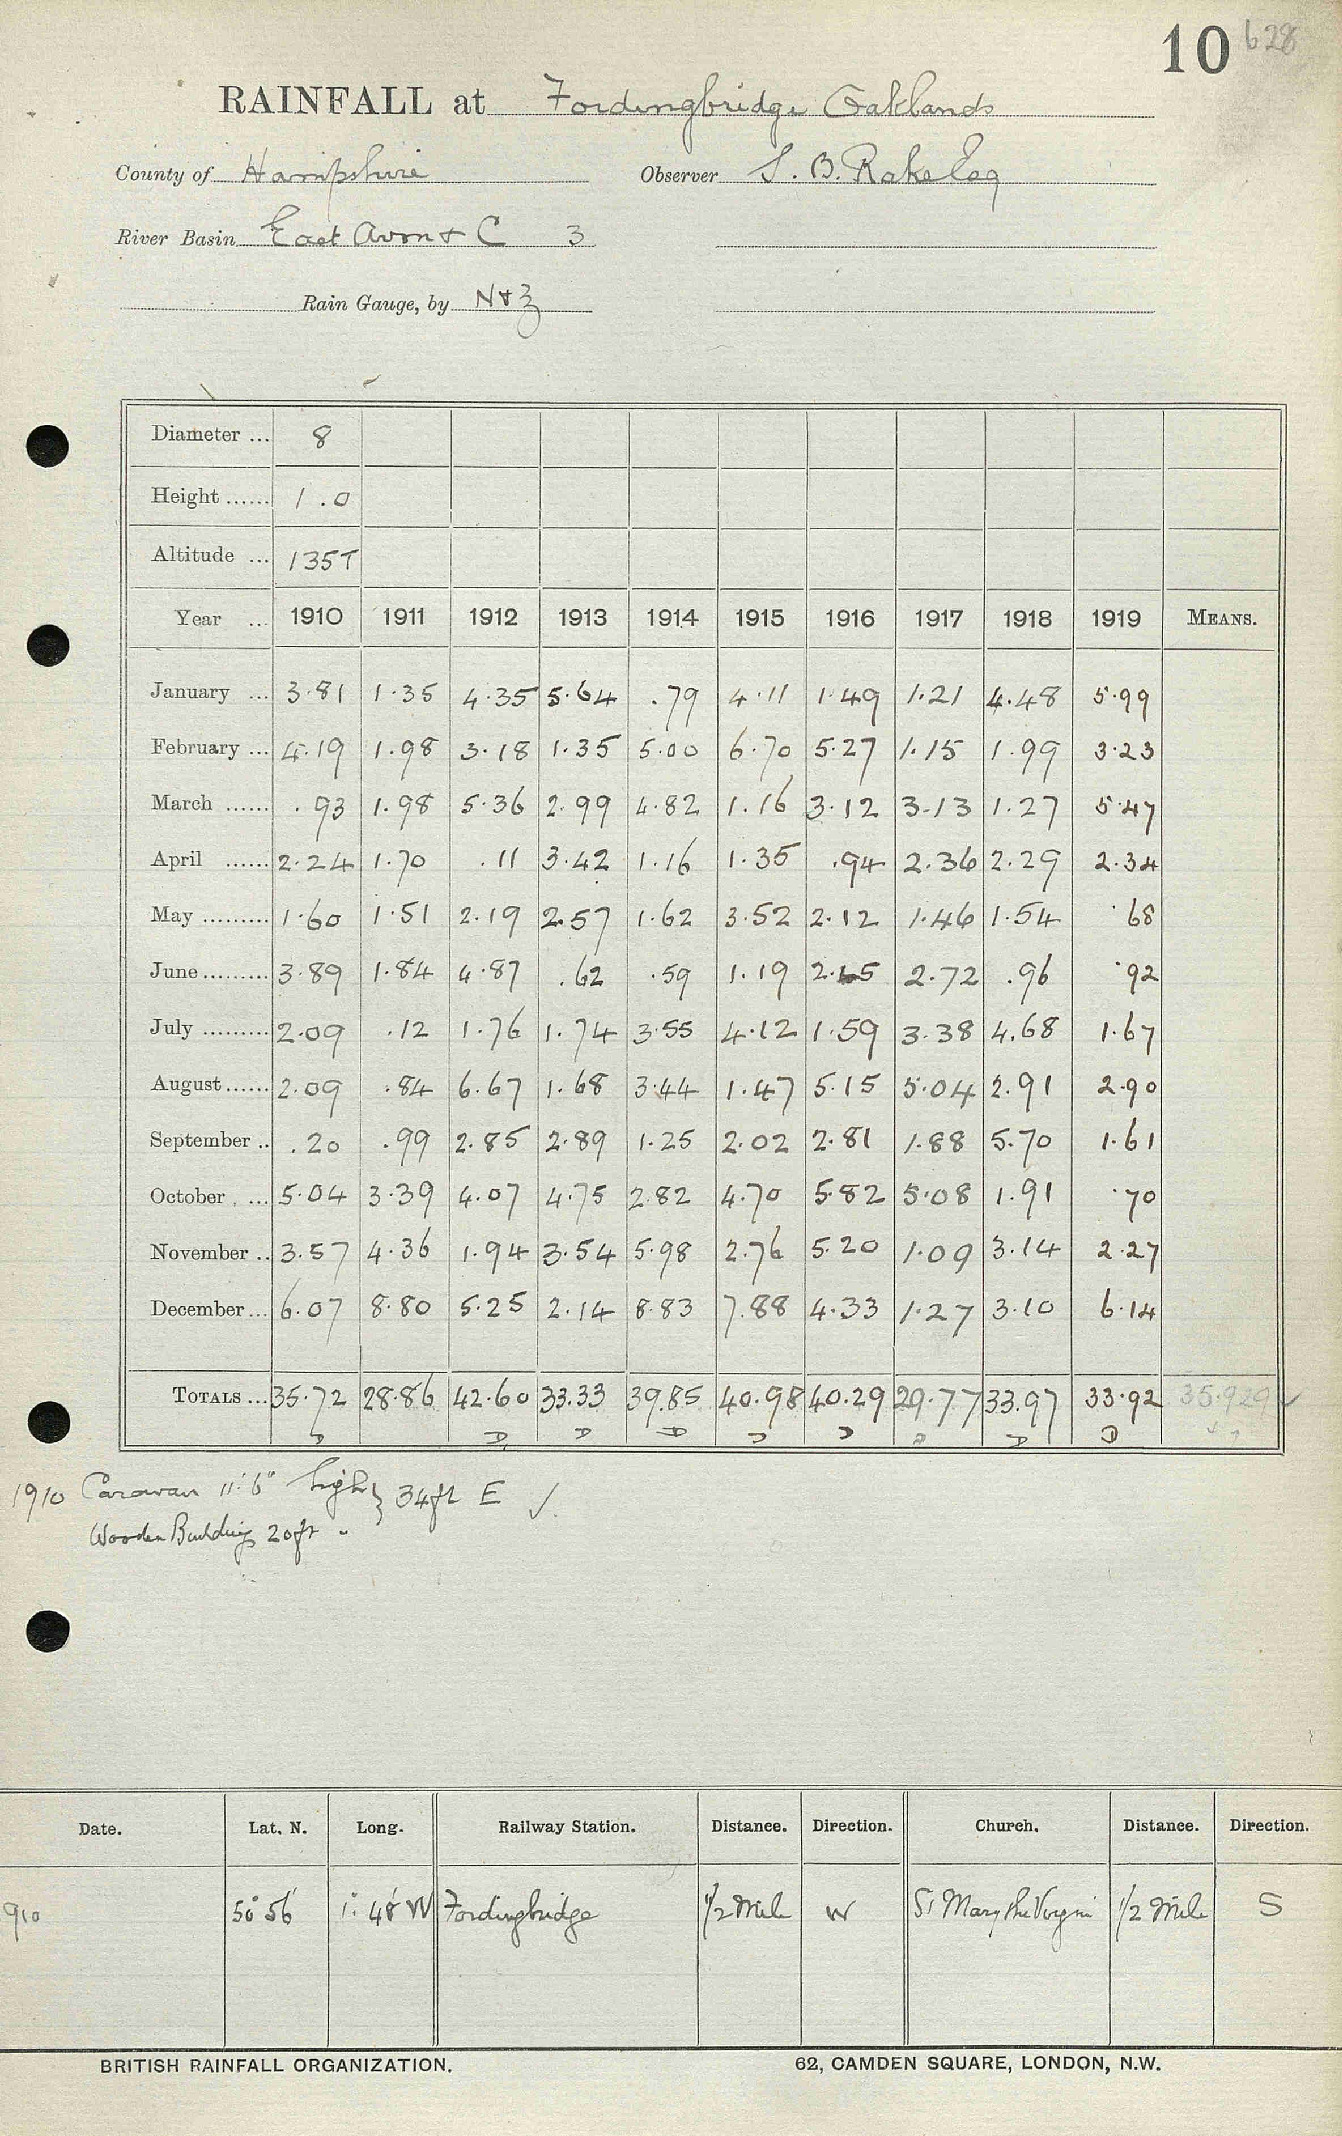 10 628
RAINFALL at Fordingbridge Oaklands
County of Hampshire Observer S. B. Rake Esq
River Basin East Avon & C 3
Rain Gauge, by N & Z
Diameter ... 8
Height ...... 1.0
Altitude ... 135T
Year ... 1910 1911 1912 1913 1914 1915 1916 1917 1918 1919 MEANS.
January ... 3.81 1.35 4.35 5.64 .79 4.11 1.49 1.21 4.48 5.99
February ... 4.19 1.98 3.18 1.35 5.00 6.70 5.27 1.15 1.99 3.23
March ...... .93 1.98 5.36 2.99 4.82 1.16 3.12 3.13 1.27 5.47
April ...... 2.24 1.70 .11 3.42 1.16 1.35 .94 2.36 2.29 2.34
May ......... 1.60 1.51 2.19 2.57 1.62 3.52 2.12 1.46 1.54 .68
June ......... 3.89 1.84 4.87 .62 .59 1.19 2.45 2.72 .96 .92
July ......... 2.09 .12 1.76 1.74 3.55 4.12 1.59 3.38 4.68 1.67
August ...... 2.09 .84 6.67 1.68 3.44 1.47 5.15 5.04 2.91 2.90
September .. .20 .99 2.85 2.89 1.25 2.02 2.81 1.88 5.70 1.61
October ... 5.04 3.39 4.07 4.75 2.82 4.70 5.82 5.08 1.91 .70
November .. 3.57 4.36 1.94 3.54 5.98 2.76 5.20 1.09 3.14 2.27
December ... 6.07 8.80 5.25 2.14 8.83 7.88 4.33 1.27 3.10 6.14
TOTALS ... 35.72 28.86 42.60 33.33 39.85 40.98 40.29 29.77 33.97 33.92 35.929
1910 Caravan 11'.6" high } 34ft E ✓.
Wooden Building 20ft "
Date. Lat. N. Long. Railway Station. Distance. Direction. Church. Distance. Direction.
910 50° 56' 1° 48' W Fordingbridge 1/2 Mile W St Mary the Virgin 1/2 Mile S
BRITISH RAINFALL ORGANIZATION. 62, CAMDEN SQUARE, LONDON, N.W.